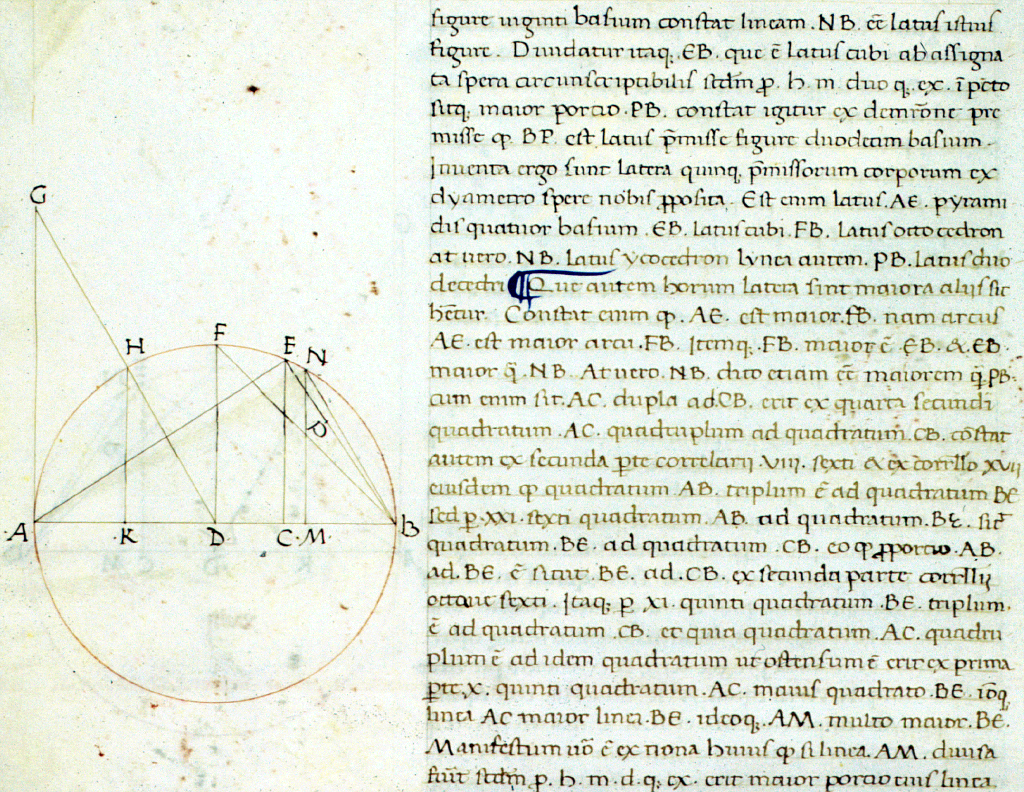 G
H
F
E
N
P
A
K
D
C
M
B
figure uiginti basium constat lineam . NB . eē latus istius
figure . Diuidatur itaq; . EB . que ē latus cubi ab assigna
ta spera circunscriptibilis scdm̄ ꝓ . h . m . duo q; . ex . ī pūcto
sitq; maior portio . PB . constat igitur ex demrōne pre
misse qꝫ . BP . est latus p̄misse figure duodecim basium .
Inuenta ergo sunt latera quinq; p̄missorum corporum ex
dyametro spere nobis ꝓposita . Est enim latus . AE . pyrami
dis quatuor basium . EB . latus cubi . FB . latus octo cedron
at uero . NB . latus ycocedron lynea autem . PB . latus duo
decedri ¶ Que autem horum latera sint maiora alijs sic
hētur . Constat enim qꝫ . AE . est maior . fB . nam arcus
AE . est maior arcu . FB . Itemq; . FB . maior ē . EB . & . EB .
maior q̄ . NB . At uero . NB . dico etiam eē maiorem q̄ . PB .
cum enim sit . AC . dupla ad . CB . erit ex quarta secundi
quadratum . AC . quadruplum ad quadratum . CB . cōstat
autem ex secunda ꝑte correlarij . VIII . sexti & ex corrello XVII
eiusdem qꝫ quadratum AB . triplum ē ad quadratum BE
sed ꝑ . XXI . sexti quadratum . AB . ad quadratum . BE . sic̄
quadratum . BE . ad quadratum . CB . eo qꝫ ꝓportio . AB .
ad . BE . ē sicut . BE . ad . CB . ex secunda parte corrllij
octaue sexti . Itaq; ꝑ XI . quinti quadratum . BE . triplum .
ē ad quadratum . CB . et quia quadratum . AC . quadru
plum ē ad idem quadratum ut ostensum ē erit ex prima
ꝑte . X . quinti quadratum . AC . maius quadrato . BE . iōq;
linea AC maior linea . BE . ideoq; . AM . multo maior . BE .
Manifestum uō ē ex nona huius qꝫ si linea . AM . diuisa
fuīt scdm̄ ꝓ . h . m . d . q; . ex . erit maior portio eius linea